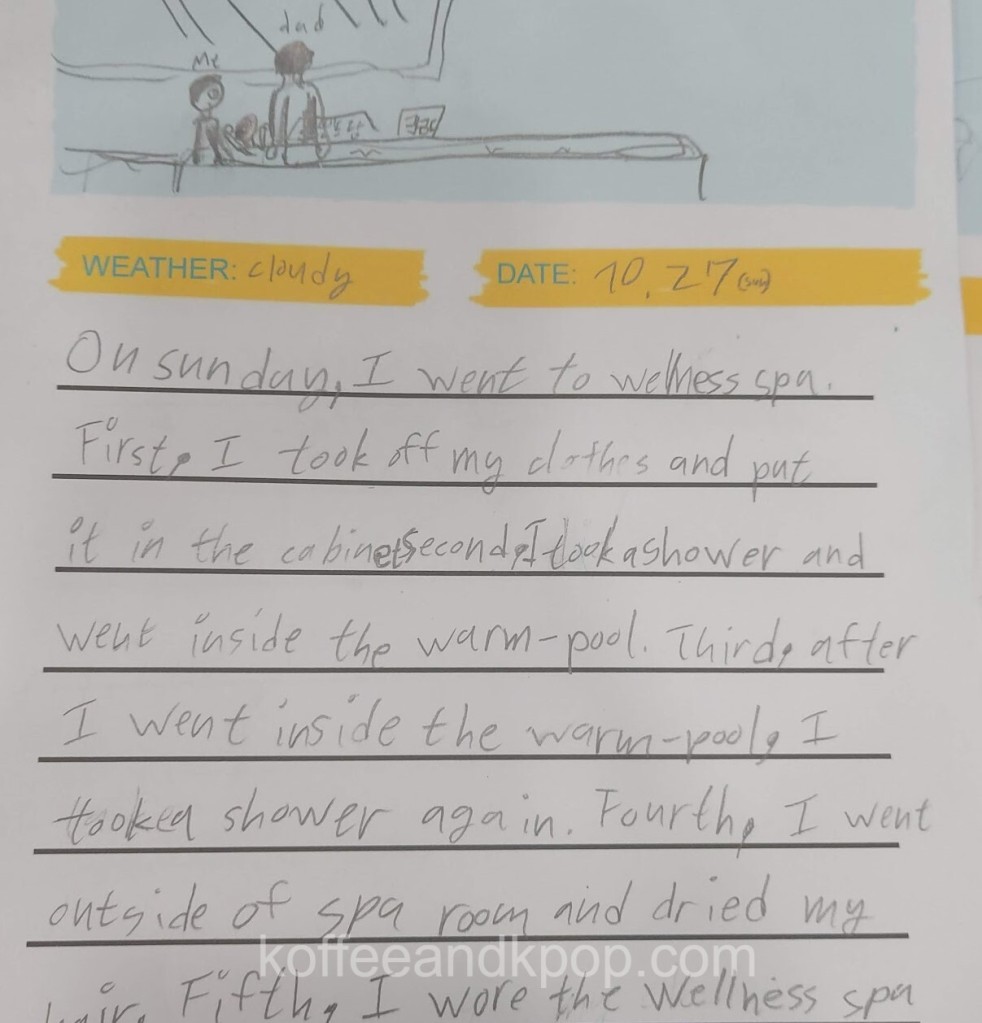 dad
Me
WEATHER: cloudy
DATE: 10. 27 (sun)
On sunday, I went to wellness spa.
First, I took off my clothes and put
it in the cabinet. Second, I took a shower and
went inside the warm-pool. Third, after
I went inside the warm-pool, I
tooked shower again. Fourth, I went
outside of spa room and dried my
hair. Fifth, I wore the wellness spa
koffeeandkpop.com